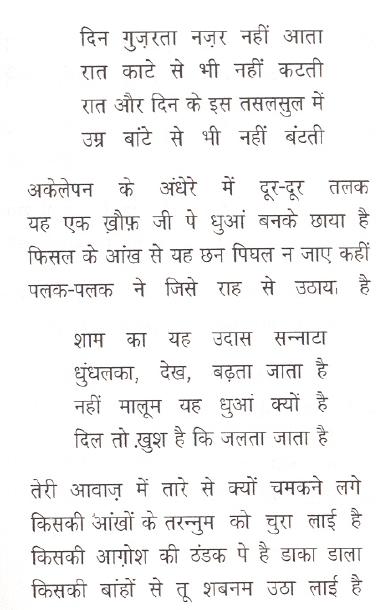 दिन गुज़रता नज़र नहीं आता
रात काटे से भी नहीं कटती
रात और दिन के इस तसलसुल में
उम्र बांटे से भी नहीं बंटती
अकेलेपन के अंधेरे में दूर-दूर तलक
यह एक ख़ौफ़ जी पे धुआं बनके छाया है
फिसल के आंख से यह छन पिघल न जाए कहीं
पलक-पलक ने जिसे राह से उठाया है
शाम का यह उदास सन्नाटा
धुंधलका, देख, बढ़ता जाता है
नहीं मालूम यह धुआं क्यों है
दिल तो ख़ुश है कि जलता जाता है
तेरी आवाज़ में तारे से क्यों चमकने लगे
किसकी आंखों के तरन्नुम को चुरा लाई है
किसकी आग़ोश की ठंडक पे है डाका डाला
किसकी बांहों से तू शबनम उठा लाई है